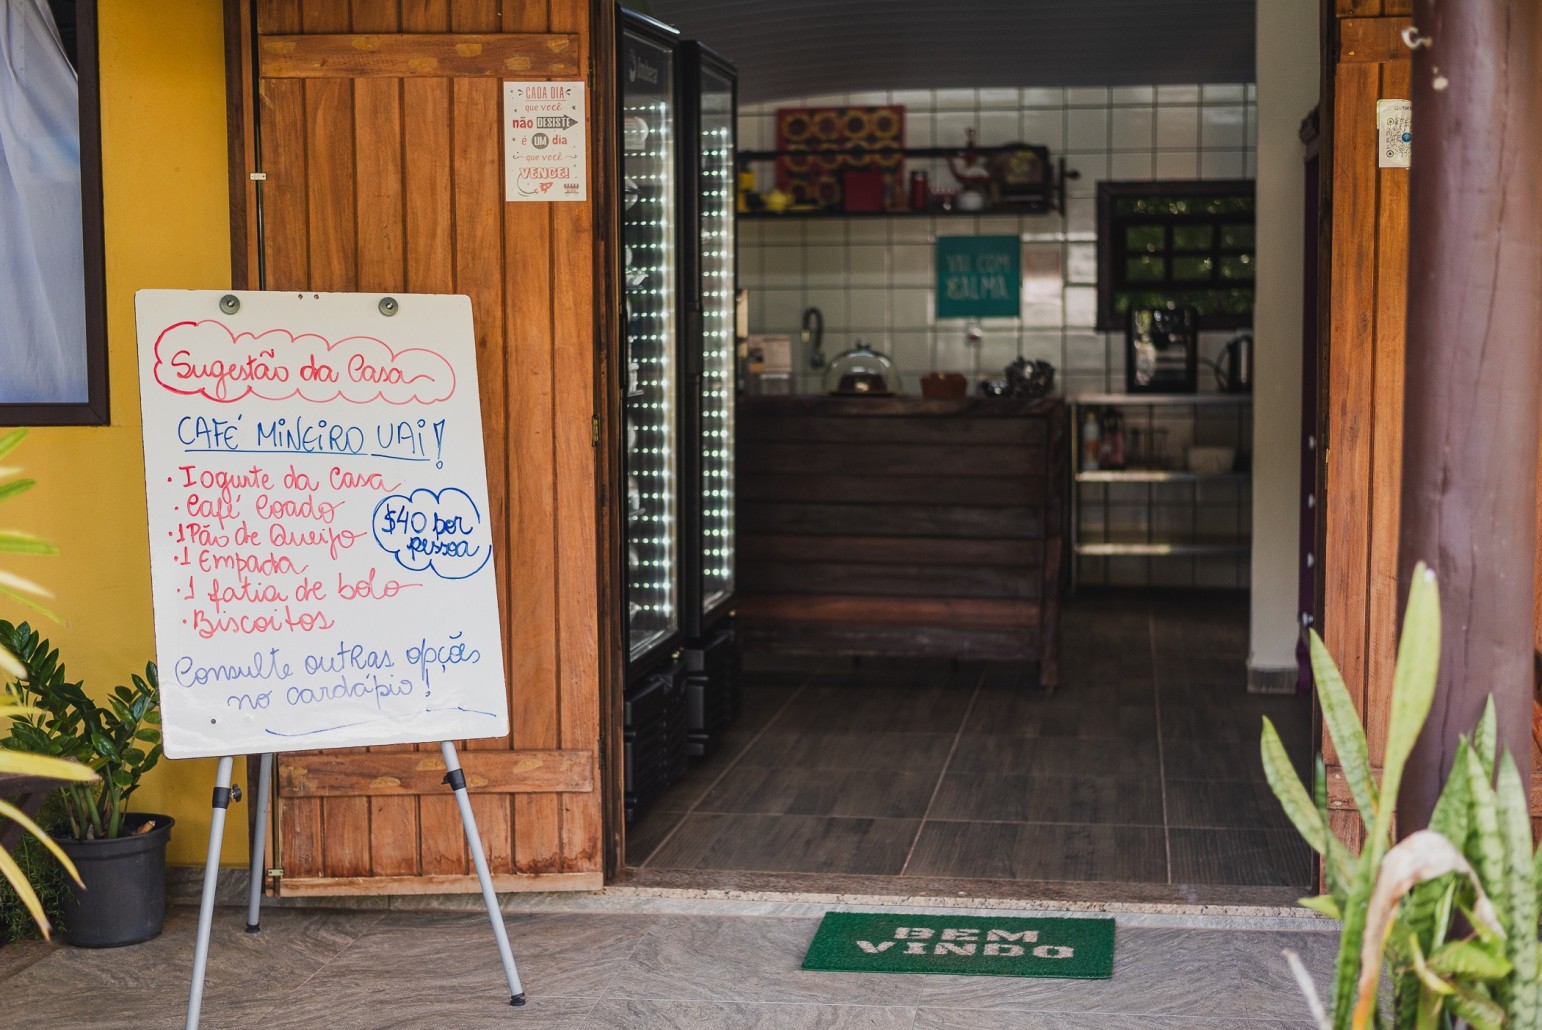 Sugestão da Casa
CAFÉ MINEIRO UAI!
• Iogurte da Casa
• Café Coado
• 1 Pão de Queijo
• 1 Empada
• 1 fatia de bolo
• Biscoitos
$40 por
pessoa
Consulte outras opções
no cardápio!
CADA DIA
que você
não DESISTE
é UM dia
que você
VENCE!
VAI COM
CALMA
BEM
VINDO